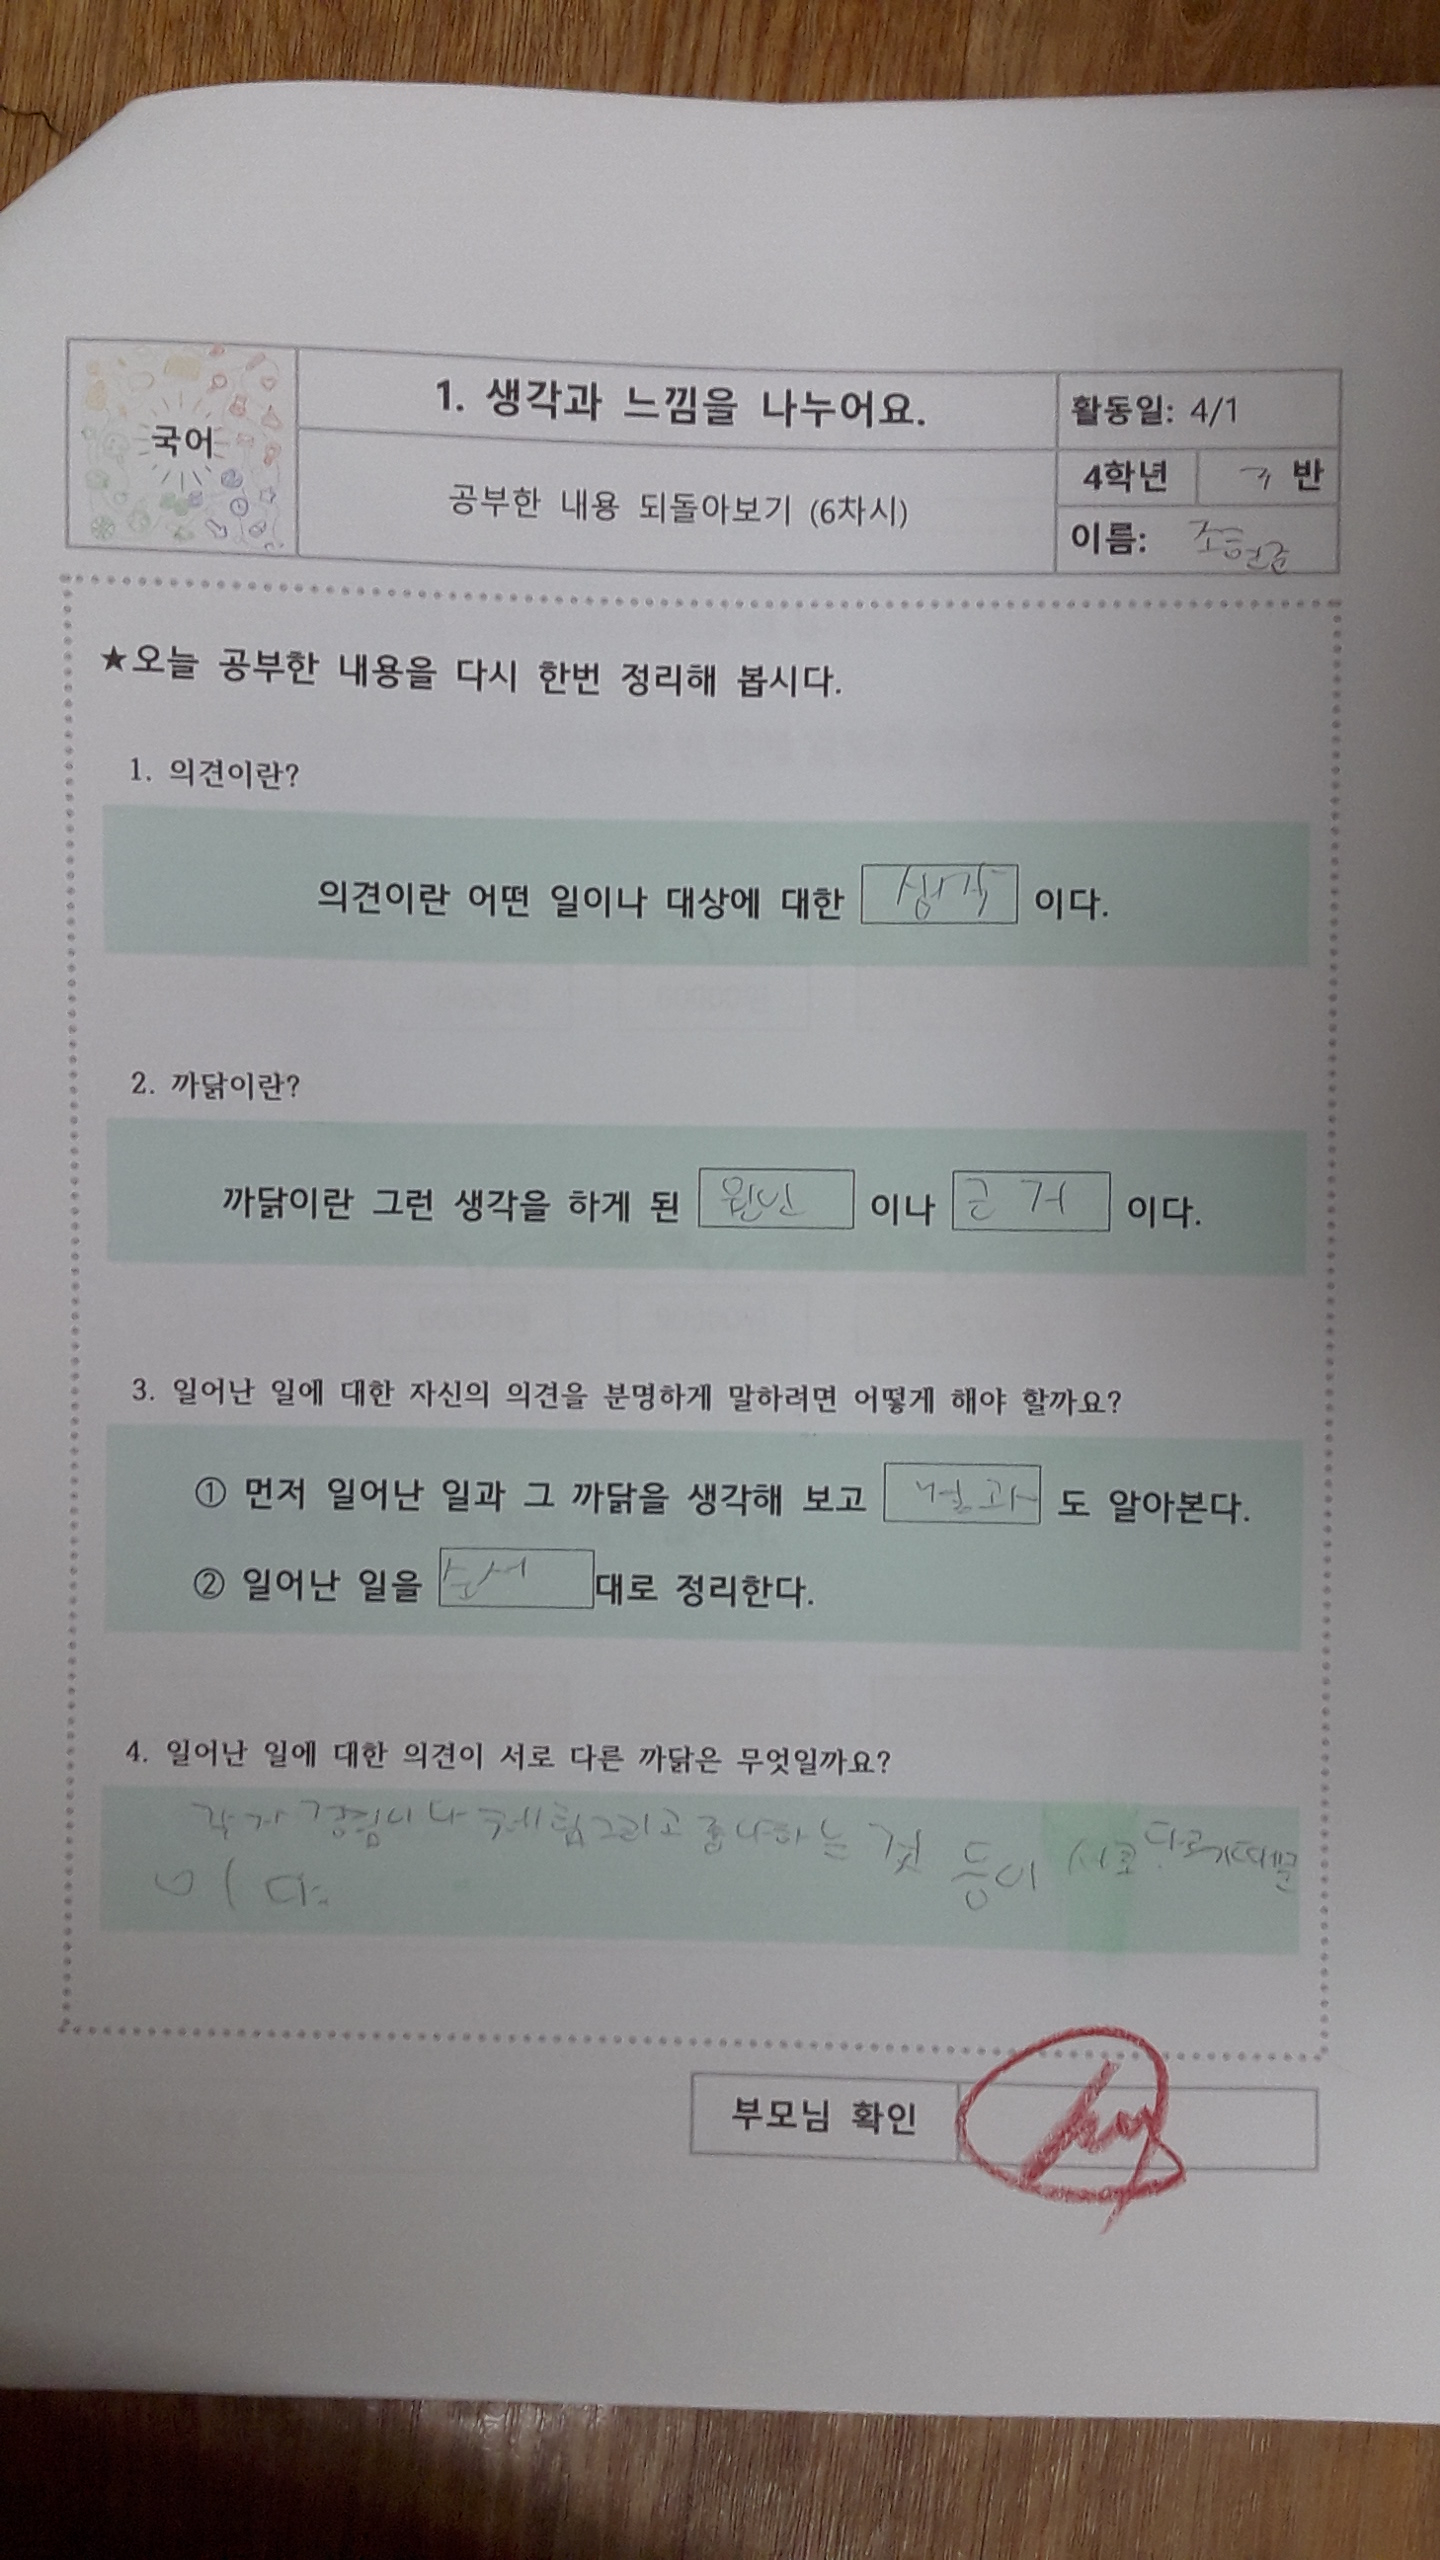 국어
1. 생각과 느낌을 나누어요.
공부한 내용 되돌아보기 (6차시)
활동일: 4/1
4학년 반
이름:
★오늘 공부한 내용을 다시 한번 정리해 봅시다.
1. 의견이란?
의견이란 어떤 일이나 대상에 대한 생각 이다.
2. 까닭이란?
까닭이란 그런 생각을 하게 된 원인 이나 근거 이다.
3. 일어난 일에 대한 자신의 의견을 분명하게 말하려면 어떻게 해야 할까요?
① 먼저 일어난 일과 그 까닭을 생각해 보고 결과 도 알아본다.
② 일어난 일을 순서 대로 정리한다.
4. 일어난 일에 대한 의견이 서로 다른 까닭은 무엇일까요?
각자 경험이나 그리고 하는 것 등이 서로 다르기때문
이다.
부모님 확인